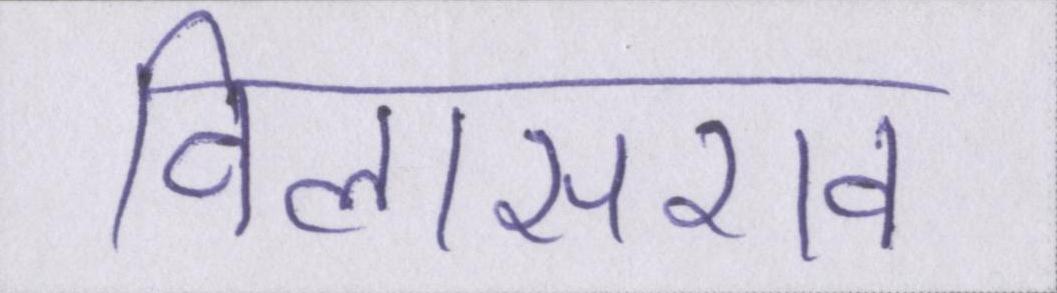 विलासराव